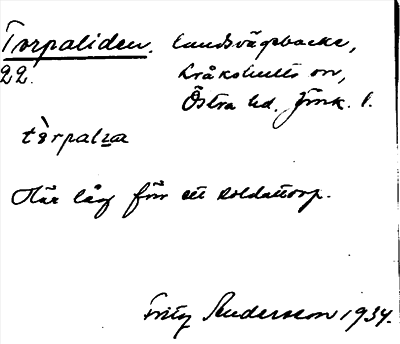 Torpaliden. Landsvägsbacke,
22. Kråkshults sn,
Östra hd. Jönk. l.
Här låg förr ett soldattorp.
Fritz Andersson 1934.